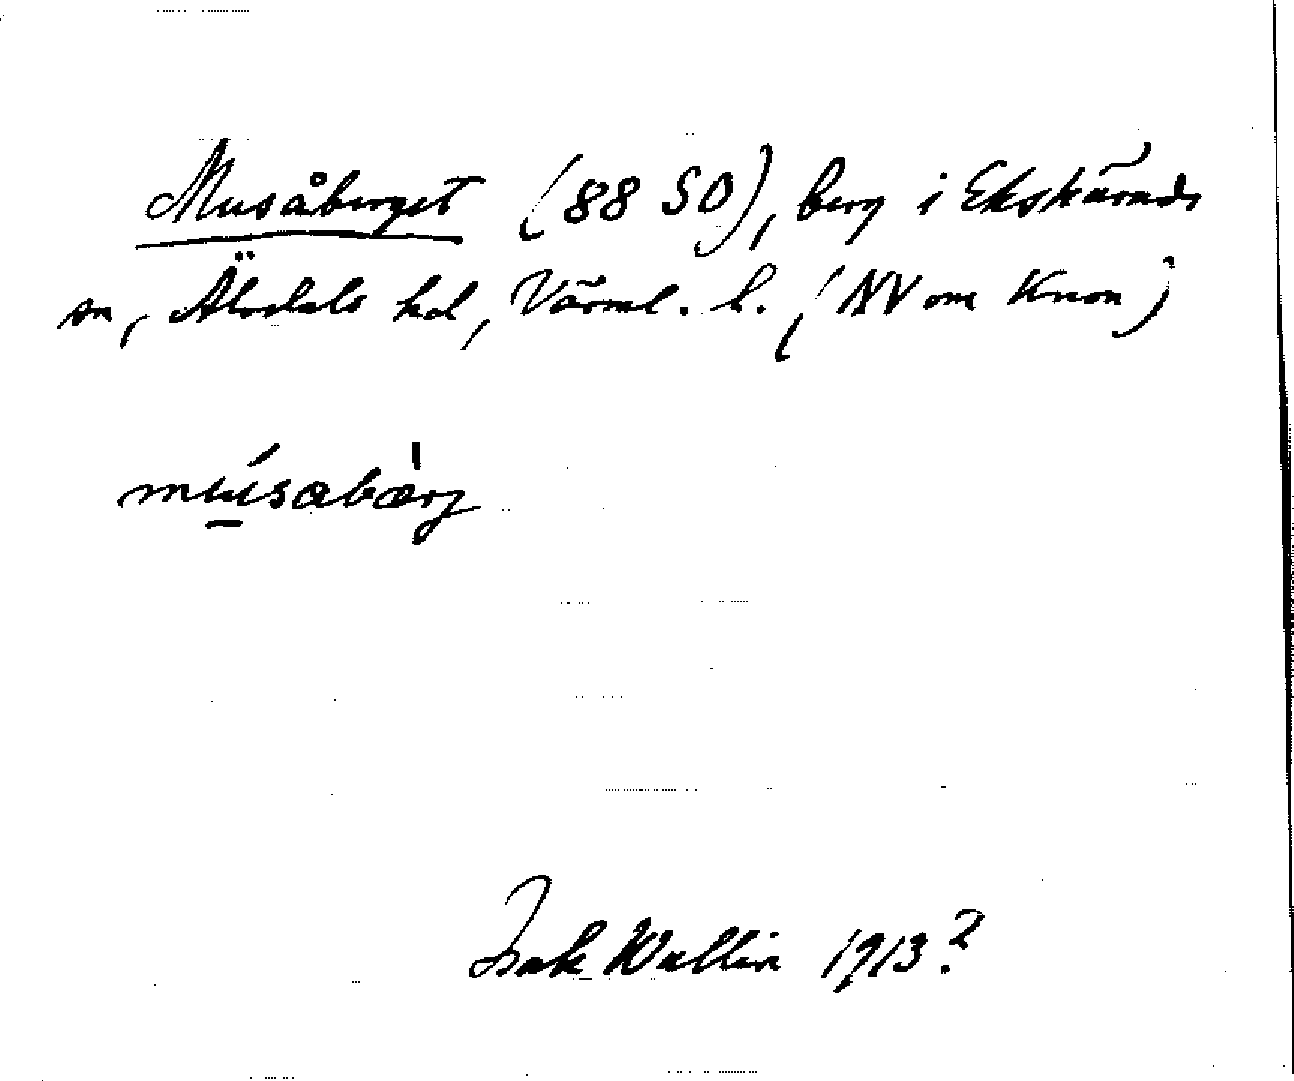 Musåberget (88 SO), berg i Ekshärads
sn, Älvdals hd, Värml. l. (NV om Knon)
mú̲sabæ̀rg
Isak Wallin 1913?